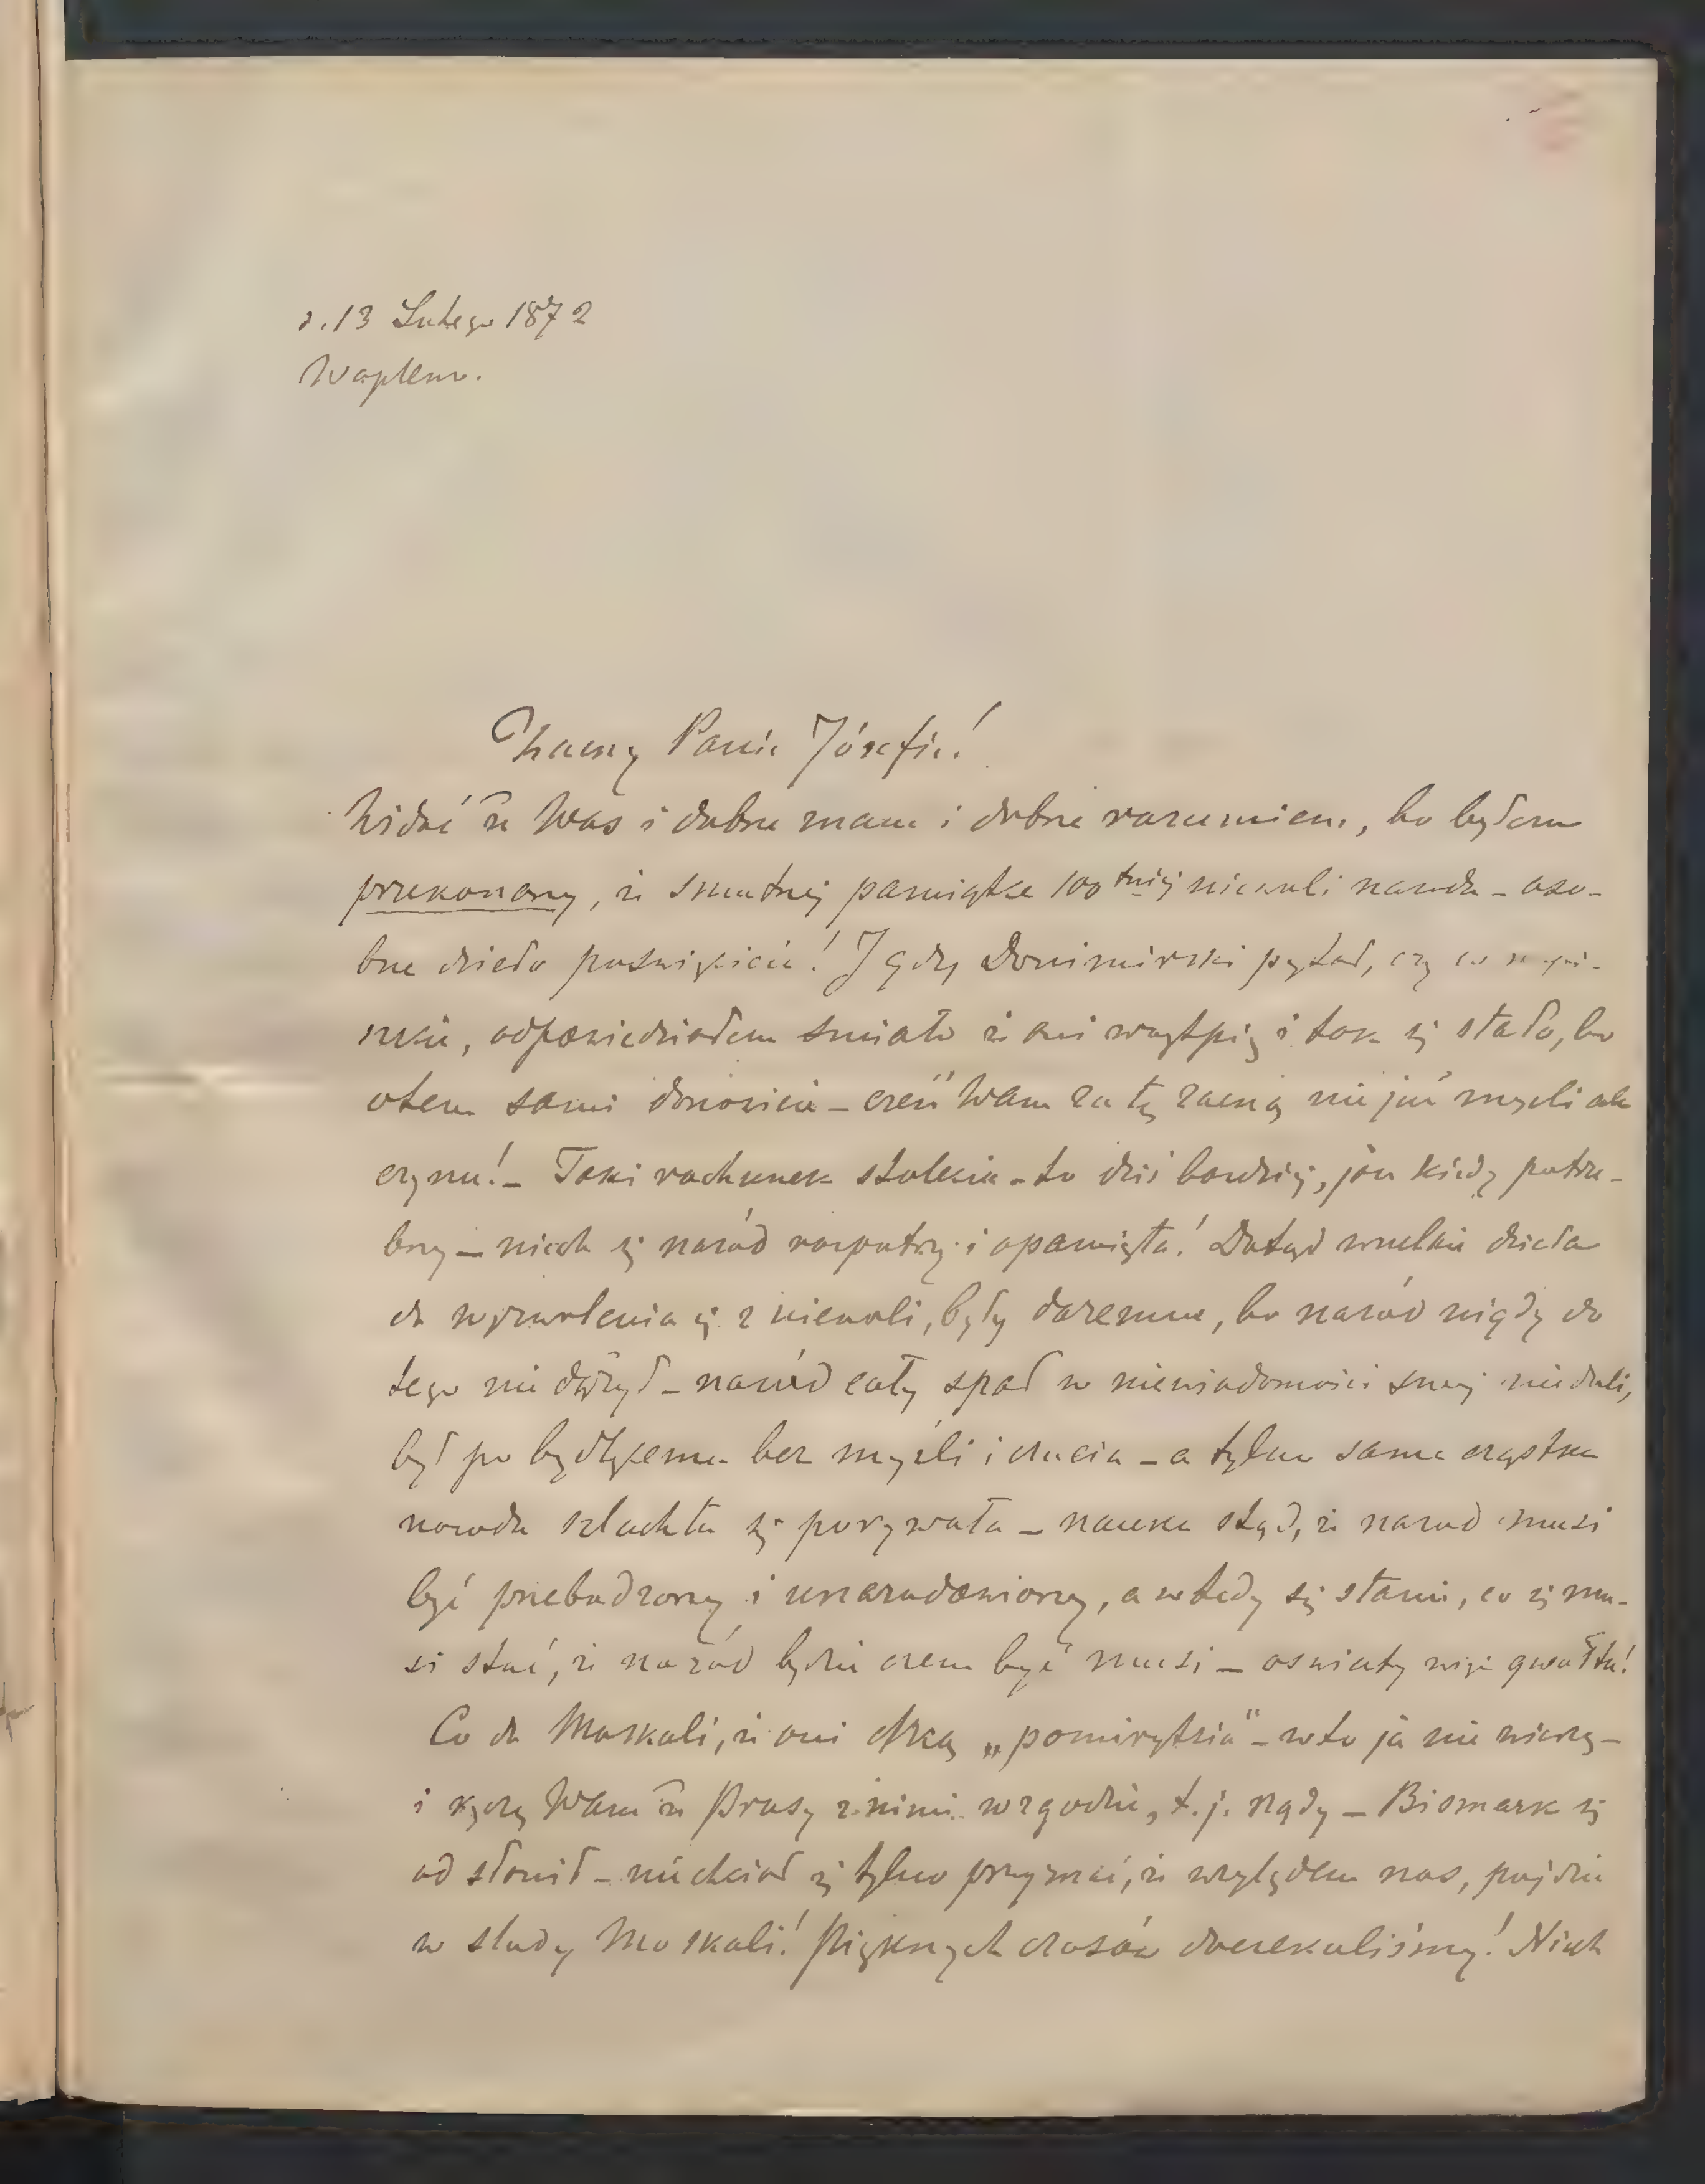 d. 13 Lutego 1872
Waplewo.
Zacny Panie Józefie!
Widać że Was i dobrze znam i dobrze rozumiem, bo byłem
przekonany, że smutnej pamiątce 100tniej niewoli narodu – oso-
bne dzieło poświęcicie! I gdy Donimirski pytał, czy co
odpowiedziałem śmiało że ani wątpię i tak się stało, bo
otem sami donosicie – cześć Wam za tę zacną nie już myśl ale
czynu! – Taki rachunek stulecia – to dziś bardziej, jak kiedy potrze-
bny – niech się naród rozpatrzy i opamięta! Dotąd wszelkie dzieła
do wyzwolenia się z niewoli, były daremne, bo naród nigdy do
tego nie dążył – naród cały spał w nieświadomości swej niedoli,
był po bydlęcemu bez myśli i czucia – a tylko sama cząstka
narodu szlachta się porywała – nauka stąd, że naród musi
być przebudzony i unarodowiony, a wtedy się stanie, co się mu-
si stać, że naród będzie czem być musi – oświaty więc gwałtu!
Co do Moskali, że oni chcą „pomirytsia" – w to ja nie wierzę –
i ręczę Wam że Prusy z nimi w zgodzie, t. j. rządy – Bismark się
od słonił – nie chciał się tylko przyznać, że względem nas, pójdzie
w ślady Moskali! Pięknych czasów doczekaliśmy! Niech